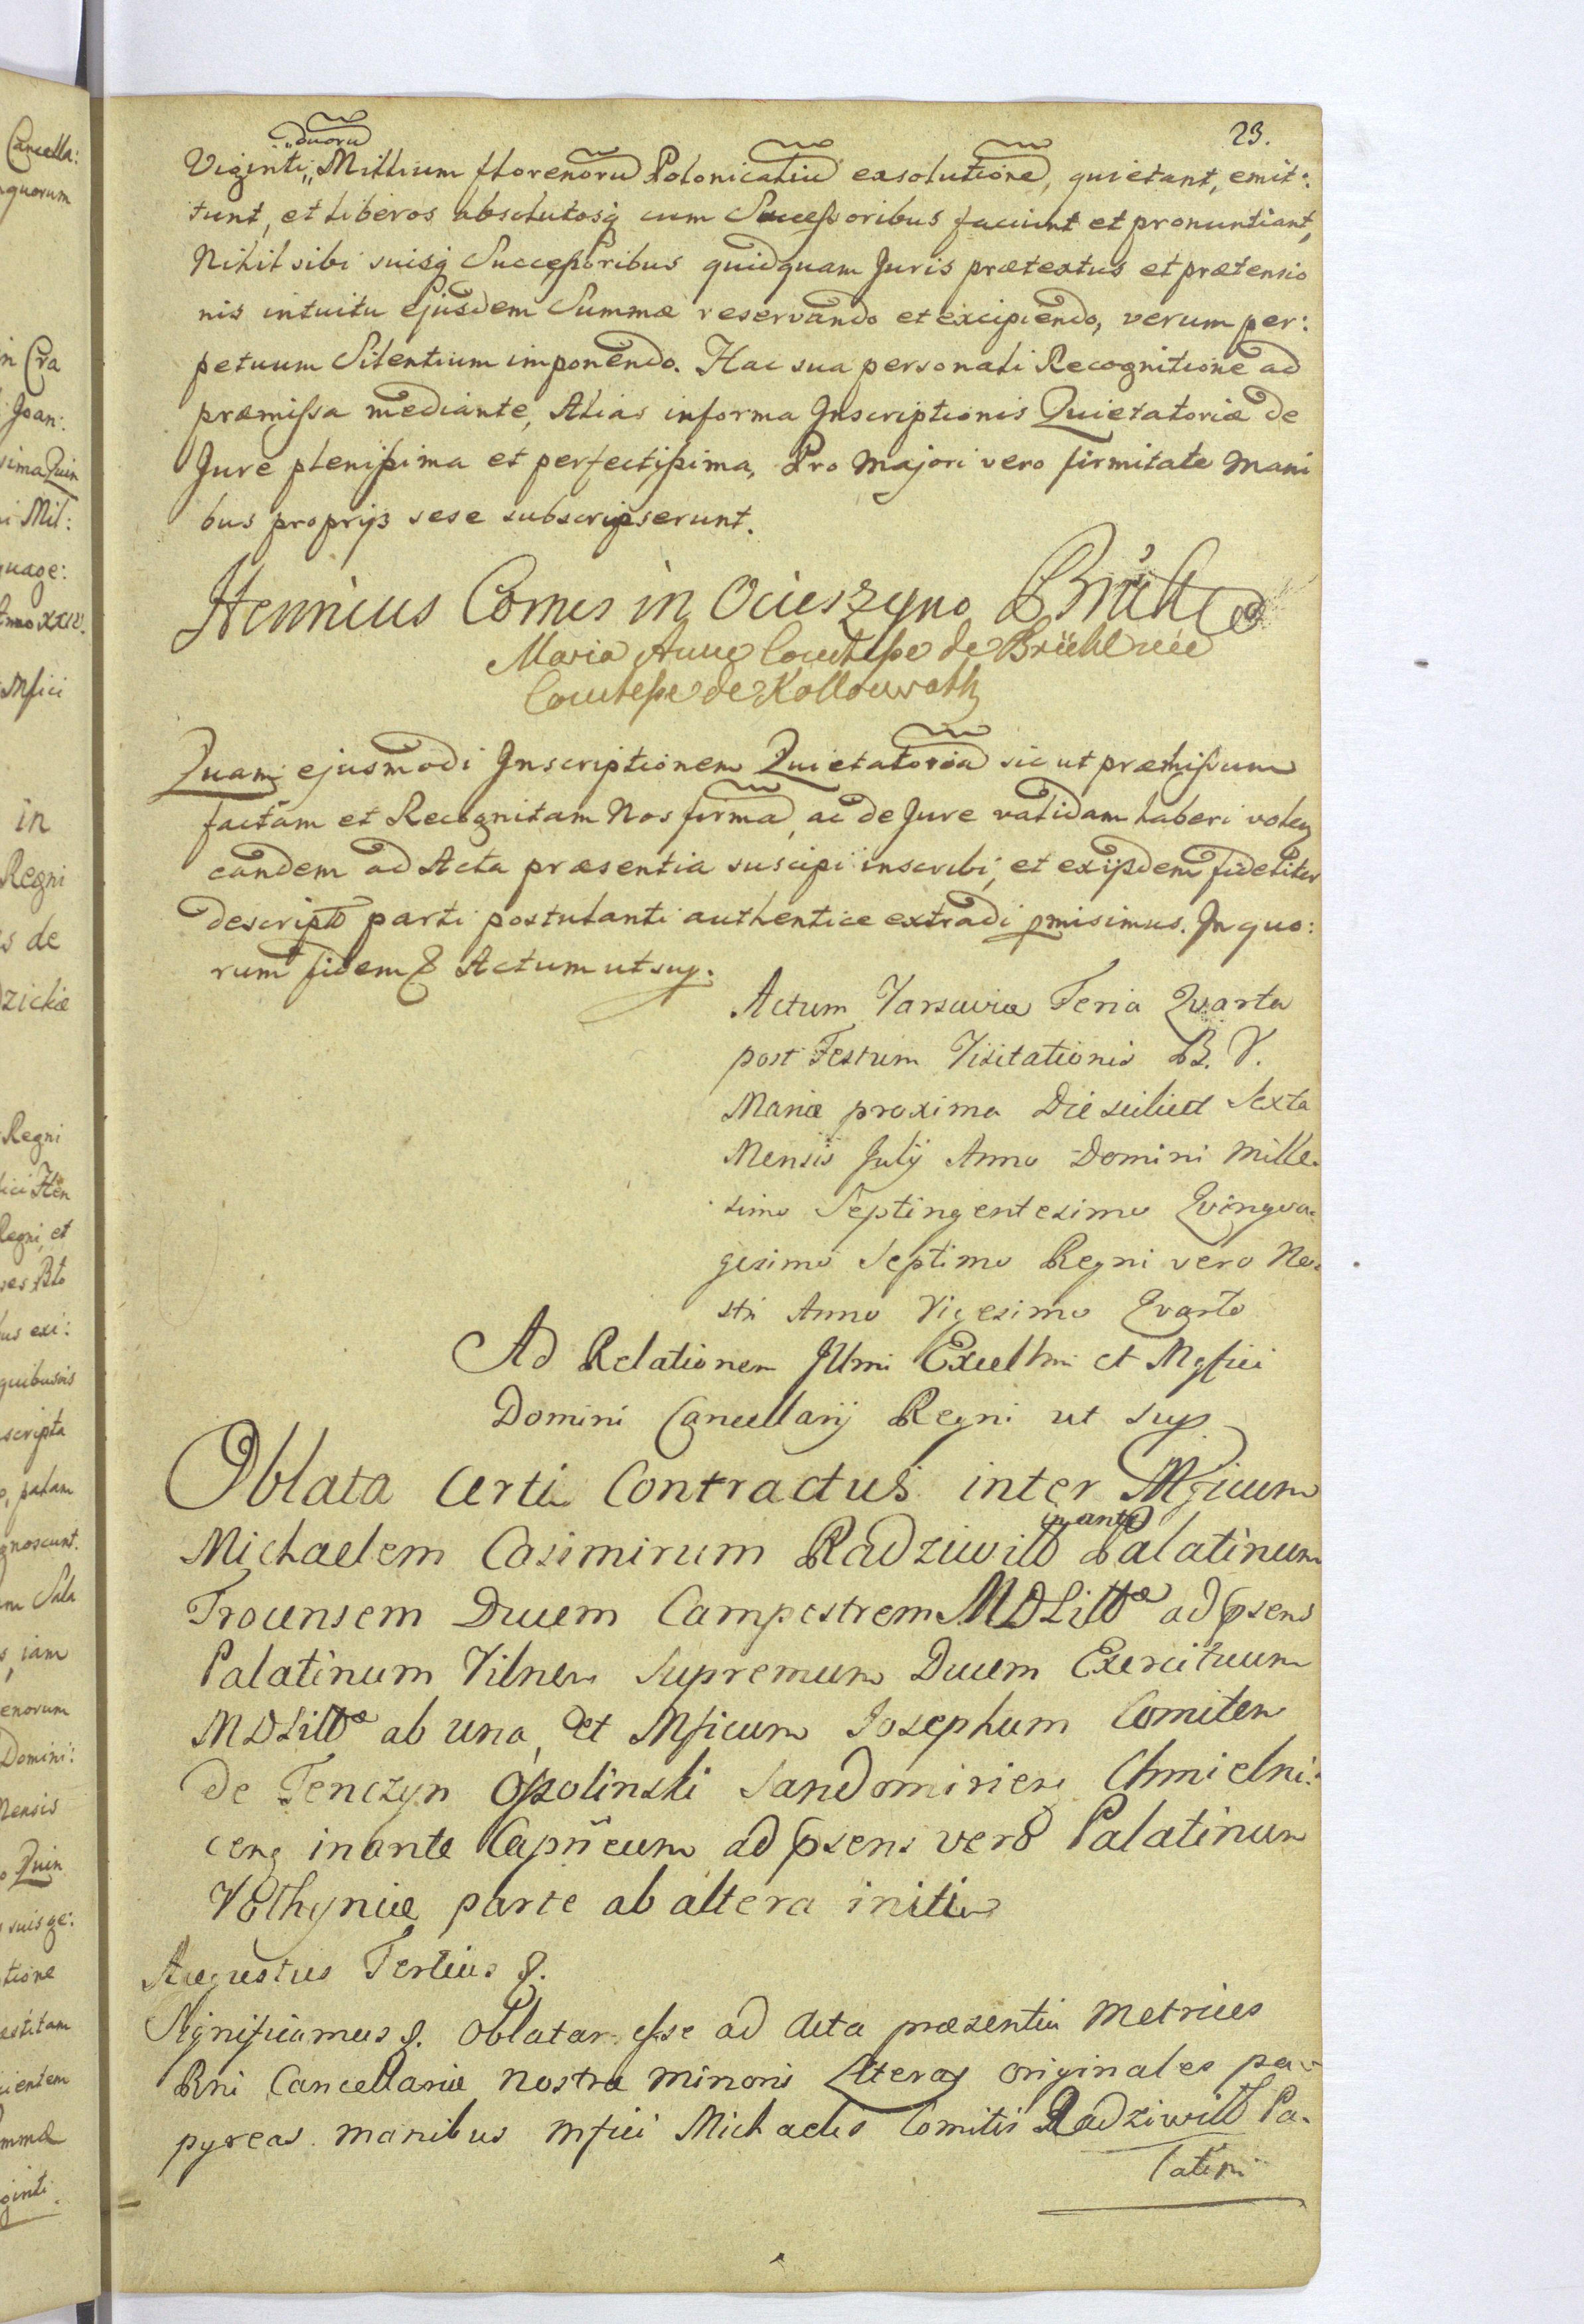 23.
duoru
Viginti,, Millium florenoru Polonicaliu exsolutione, quietant, emit:
tunt, et liberos absolutosq cum Successoribus faciunt et pronuntiant,
Nihil sibi suisq Successoribus quidquam Juris prætextus et prætensio
nis intuitu Ejusdem Summæ reservando et excipiendo, verum per:
petuum Silentium imponendo. Hac sua personali Recognitione ad
præmissa mediante, Alias informa Inscriptionis Quietatoriæ de
Jure plenissima et perfectissima, Pro Majori vero firmitate Mani
bus proprijs sese subscripserunt.
Henricus Comes in Ocieszyno Brühl
Maria Anne Comtesse de Brühl née
Comtesse de Kollowrath
Quam ejusmodi Inscriptionem Quietatoria sic ut præmissum
factam et Recognitam Nos firma, ac de Jure validam haberi volen
eandem ad Acta præsentia suscipi inscribi, et exijsdem fideliter
descripto parti postulanti authentice extradi pmisimus. In quo:
rum fidem & Actum ut sup.
Actum Varsaviæ Feria Qvarta
post Festum Visitationis B. V.
Mariæ proxima Die scilicet Sexta
Mensis Julij Anno Domini Mille.
simo Septingentesimo Qvinqva.
gesimo Septimo Regni vero No.
stri Anno Vigesimo Qvarto
Ad Relationem Illmi Excellmi et Mgfici
Domini Cancellarij Regni ut sup
Oblata Certi Contractus inter Mficum
in ante
Michaelem Casimirum Radziwill Palatinum
Trocensem Ducem Campestrem MDLittæ ad psens
Palatinum Vilnen Supremum Ducem Exercituum
MDLittæ ab una, et Mficum Josephum Comitem
de Tenczyn Ossolinski Sandomirien Chmielni:
cens inante Capneum ad psens vero Palatinum
Volhyniæ parte ab altera initi
Augustus Tertius &.
Significamus &. Oblatas esse ad Acta præsentia Metrices
Rni Cancellariæ Nostræ Minoris Literas originales pa
pyreas manibus Mfici Michaelis Comitis Radziwill Pa.
latini